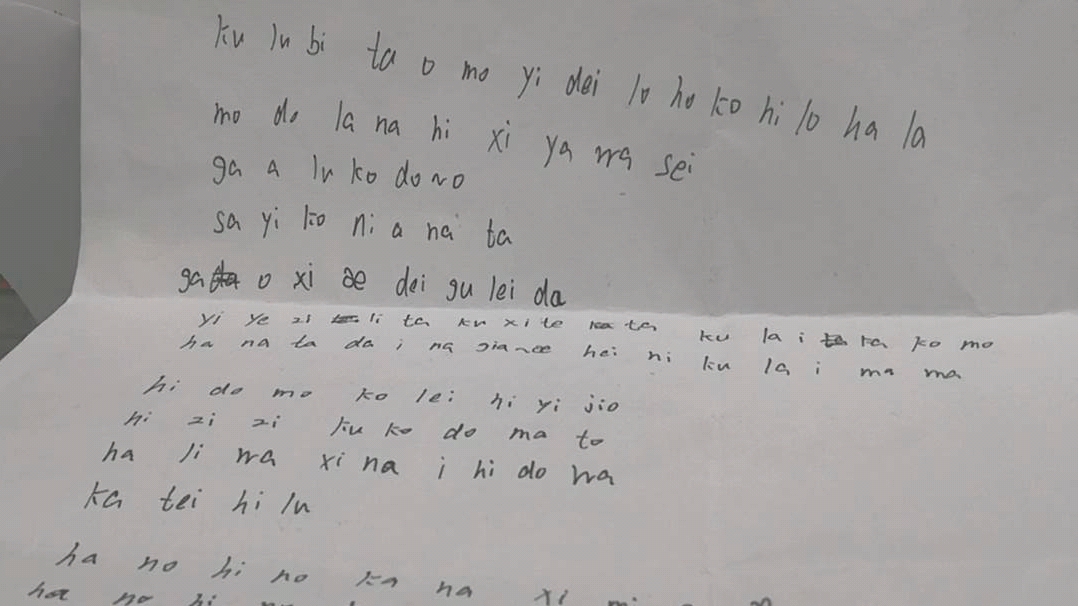 ku lu bi ta o mo yi dei lo ho ko hi lo ha la
mo do la na hi xi ya wa sei
ga a lu ko do no
sa yi ko ni a na ta
ga o xi ae dei gu lei da
yi ye zi li ta ku xi te ka ta ku la i ka ko mo
ha na ta da i na hei ni ku la i ma ma
hi do mo ko lei hi yi jio
hi zi zi ku ko do ma to
ha li wa xi na i hi do wa
ka tei hi lu
ha no hi no ka na xi
ha no hi